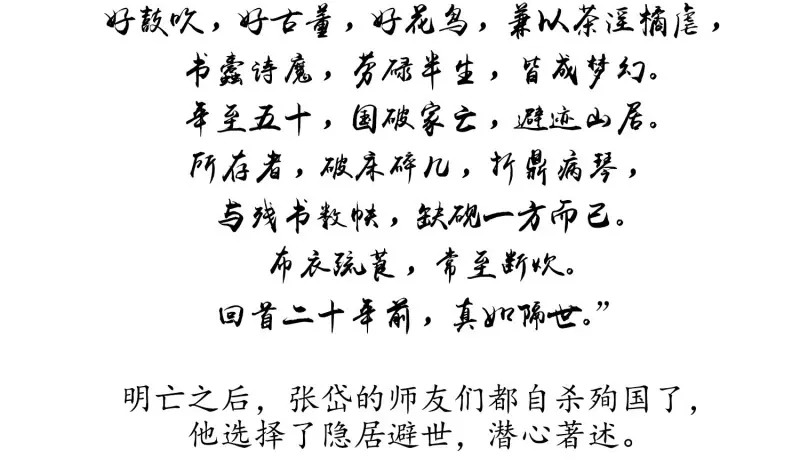 好鼓吹，好古董，好花鸟，兼以茶淫橘虐，
书蠹诗魔，劳碌半生，皆成梦幻。
年至五十，国破家亡，避迹山居。
所存者，破床碎几，折鼎病琴，
与残书数帙，缺砚一方而已。
布衣疏莨，常至断炊。
回首二十年前，真如隔世。”
明亡之后，张岱的师友们都自杀殉国了，
他选择了隐居避世，潜心著述。